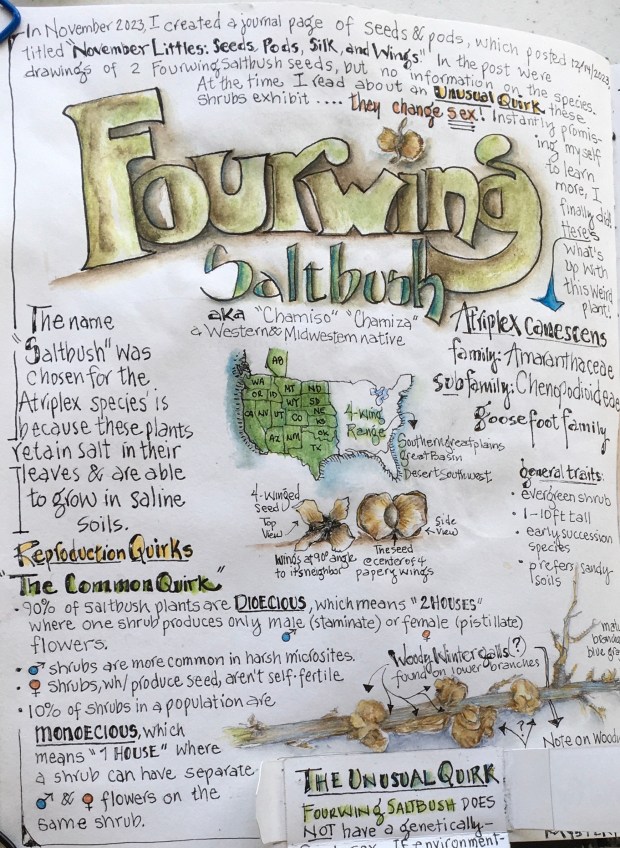 In November 2023, I created a journal page of seeds & pods, which posted 12/14/2023
titled "November Littles: Seeds, Pods, Silk, and Wings" In the post were
drawings of 2 Fourwing Saltbush seeds, but no information on the species.
At the time, I read about an Unusual Quirk these
shrubs exhibit .... they change sex! Instantly promis-
ing myself
to learn
more, I
finally did!
Here's
what's
up with
this weird
plant!
Fourwing
Saltbush
aka "Chamiso" "Chamiza"
a Western & Midwestern native
The name
"Saltbush" was
chosen for the
Atriplex species
because these plants
retain salt in their
leaves & are able
to grow in saline
soils.
AB
WA
MT
ND
OR
ID
WY
SD
NE
CA
NV
UT
CO
KS
AZ
NM
OK
TX
4-Wing
Range
Southern great plains
Great Basin
Desert Southwest
Atriplex canescens
family: Amaranthaceae
subfamily: Chenopodioideae
goosefoot family
general traits:
• evergreen shrub
• 1-10ft tall
• early succession
species
• prefers sandy
soils
4-winged
Seed
Top
View
Side
View
Wings at 90° angle
to its neighbor
The seed
@ center of 4
papery wings
Reproduction Quirks
"The Common Quirk"
• 90% of saltbush plants are DIOECIOUS, which means "2 HOUSES"
where one shrub produces only male (staminate) or female (pistillate)
♂ ♀
flowers.
• ♂ shrubs are more common in harsh microsites.
• ♀ shrubs, wh/ produce seed, aren't self-fertile
• 10% of shrubs in a population are
MONOECIOUS, which
means "1 HOUSE" where
a shrub can have separate
♂ & ♀ flowers on the
same shrub.
Woody Winter galls (?)
found on lower branches
blue gra
?
Note on Wood
THE UNUSUAL QUIRK
FOURWING SALTBUSH DOES
NOT have a genetically-
IF environment-